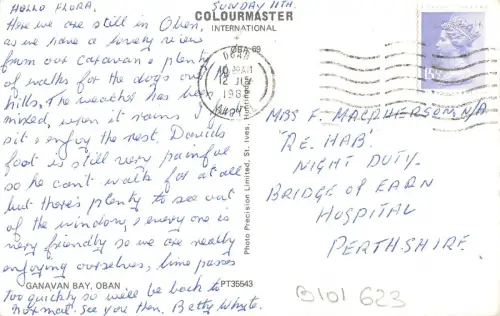 HELLO FLORA, SUNDAY 11TH.
Here we are still in Oban,
as we have a lovely view
from our caravan & plenty
of walks for the dogs over
hills. The weather has been
mixed, when it rains I
sit & enjoy the rest. Davids
foot is still very painful
so he cant walk far at all
but there's plenty to see out
of the window, & every one is
very friendly so we are really
enjoying ourselves, time passes
too quickly so will be back to
normal. See you then. Betty Whyte.
GANAVAN BAY, OBAN
PT35543
COLOURMASTER
INTERNATIONAL
OBA 69
OBAN
12 JLY
Photo Precision Limited, St. Ives, Huntingdon
MRS F. MACPHERSON, N/A
'RE. HAB'.
NIGHT DUTY.
BRIDGE OF EARN
HOSPITAL
PERTHSHIRE.
B101 623